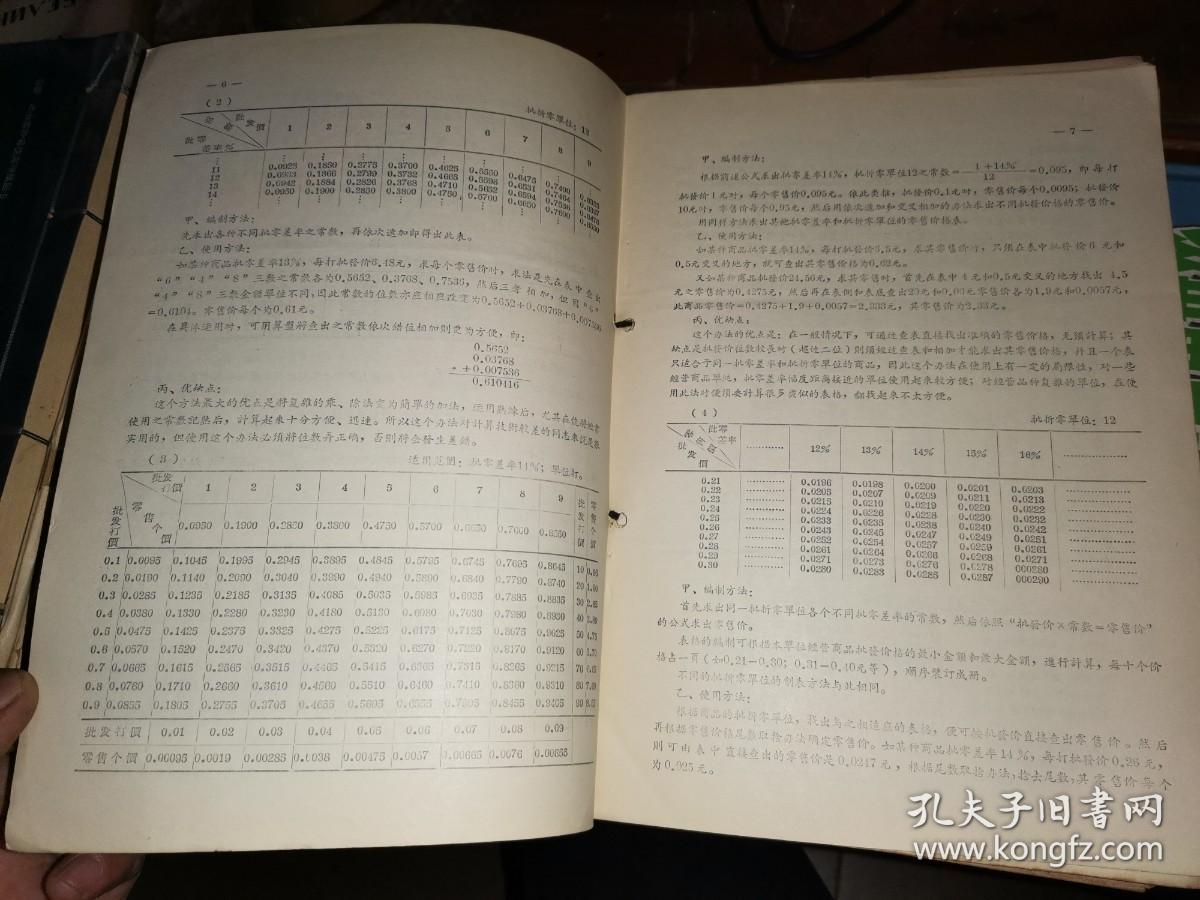 — 6 —
(2)
批折零單位：12
批发價
批零差率%
1 2 3 4 5 6 7 8 9
11 0.0925 0.1850 0.2775 0.3700 0.4625 0.5550 0.6475 0.7400
12 0.0933 0.1866 0.2799 0.3732 0.4665 0.5598 0.6531 0.7464
13 0.0942 0.1884 0.2826 0.3768 0.4710 0.5652 0.6594 0.7536
14 0.0950 0.1900 0.2850 0.3800 0.4750 0.5700 0.6650 0.7600 0.8550
甲、編制方法：
先求出各种不同批零差率之常数，再依次遞加即得出此表。
乙、使用方法：
如某种商品批零差率13%，每打批發价6.48元，求每个零售价时，求法是先在表中查出
“6”“4”“8”三数之常数各为0.5652、0.3768、0.7536，然后三者相加，但因“6”
“4”“8”三数金額單位不同，因此常数的位数亦应相应改变为0.5652+0.03768+0.007536
=0.6104。零售价每个为0.61元。
在具体运用时，可用算盤將查出之常数依次錯位相加則更为方便，即：
0.5652
0.03768
+0.007536
0.610416
丙、优缺点：
这个方法最大的优点是將复雜的乘、除法变为簡單的加法，运用熟練后，尤其在使將經常
使用之常数記熟后，計算起来十分方便、迅速。所以这个办法对計算技術較差的同志来說是很
实用的，但使用这个办法必須將位数弄正确，否則將会發生差錯。
(3)
适用范围：批零差率14%；單位打。
批发打價 1 2 3 4 5 6 7 8 9 批发打價 零售个價
零售个價 0.0950 0.1900 0.2850 0.3800 0.4750 0.5700 0.6650 0.7600 0.8550
批发打價
0.1 0.0095 0.1045 0.1995 0.2945 0.3895 0.4845 0.5795 0.6745 0.7695 0.8645 10 0.95
0.2 0.0190 0.1140 0.2090 0.3040 0.3990 0.4940 0.5890 0.6840 0.7790 0.8740 20 1.90
0.3 0.0285 0.1235 0.2185 0.3135 0.4085 0.5035 0.5985 0.6935 0.7885 0.8835 30 2.85
0.4 0.0380 0.1330 0.2280 0.3230 0.4180 0.5130 0.6080 0.7030 0.7980 0.8930 40 3.80
0.5 0.0475 0.1425 0.2375 0.3325 0.4275 0.5225 0.6175 0.7125 0.8075 0.9025 50 4.75
0.6 0.0570 0.1520 0.2470 0.3420 0.4370 0.5320 0.6270 0.7220 0.8170 0.9120 60 5.70
0.7 0.0665 0.1615 0.2565 0.3515 0.4465 0.5415 0.6365 0.7315 0.8265 0.9215 70 6.65
0.8 0.0760 0.1710 0.2660 0.3610 0.4560 0.5510 0.6460 0.7410 0.8360 0.9310 80 7.60
0.9 0.0855 0.1805 0.2755 0.3705 0.4655 0.5605 0.6555 0.7505 0.8455 0.9405 90 8.55
批发打價 0.01 0.02 0.03 0.04 0.05 0.06 0.07 0.08 0.09
零售个價 0.00095 0.0019 0.00285 0.0038 0.00475 0.0057 0.00665 0.0076 0.00855
— 7 —
甲、編制方法：
根据前述公式求出批零差率14%，批折零單位12之常数=1+14%/12=0.095，即每打
批發价1元时，每个零售价0.095元。依此类推，批發价0.1元时，零售价每个0.0095；批發价
10元时，零售价每个0.95元，然后用依次遞加和交叉相加的办法求出不同批發价格的零售价。
用同样方法求出其他批零差率和批折零單位的零售价格表。
乙、使用方法：
如某种商品批零差率14%，每打批發价6.5元，求其零售价时，只須在表中批發价6元和
0.5元交叉的地方，就可查出其零售价格为0.62元。
又如某种商品批發价24.56元，求其零售时，首先在表中4元和0.5元交叉的地方找出4.5
元之零售价为0.4275元，然后再在表側和表底查出20元和0.06元零售价各为1.9元和0.0057元，
此商品零售价=0.4275+1.9+0.0057=2.333元，其零售价为2.33元。
丙、优缺点：
这个办法的优点是：在一般情况下，可通过查表直接找出准确的零售价格，无須計算；其
缺点是批發价位数較長时（超过二位）則須經过查表和相加才能求出其零售价格，并且一个表
只适合于同一批零差率和批折零單位的商品，因此这个办法在使用上有一定的局限性，对一些
經营商品單純，批零差率幅度距离接近的單位使用起来較方便；对經营品种复雜的單位，在使
用此法时便須要計算很多类似的表格，翻找起来不太方便。
(4)
批折零單位：12
批零差率
批发價
………… 12% 13% 14% 15% 16% …………
0.21 ………… 0.0196 0.0198 0.0200 0.0201 0.0203 …………
0.22 ………… 0.0205 0.0207 0.0209 0.0211 0.0213 …………
0.23 ………… 0.0215 0.0216 0.0219 0.0220 0.0222 …………
0.24 ………… 0.0224 0.0226 0.0228 0.0230 0.0232 …………
0.25 ………… 0.0233 0.0235 0.0238 0.0240 0.0242 …………
0.26 ………… 0.0243 0.0245 0.0247 0.0249 0.0251 …………
0.27 ………… 0.0252 0.0254 0.0257 0.0259 0.0261 …………
0.28 ………… 0.0261 0.0264 0.0266 0.0268 0.0271 …………
0.29 ………… 0.0271 0.0273 0.0276 0.0278 000280 …………
0.30 ………… 0.0280 0.0283 0.0285 0.0287 000290 …………
甲、編制方法：
首先求出同一批折零單位各个不同批零差率的常数，然后依照“批發价×常数=零售价”
的公式求出零售价。
表格的編制可根据本單位經营商品批發价格的最小金額和最大金額，進行計算，每十个价
格占一頁（如0.21—0.30；0.31—0.40元等），順序裝訂成册。
不同的批折零單位的制表方法与此相同。
乙、使用方法：
根据商品的批折零單位，找出与之相适应的表格，便可按批發价直接查出零售价。然后
再根据零售价格尾数取捨办法确定零售价。如某种商品批零差率14%，每打批發价0.26元，
則可由表中直接查出的零售价是0.0247元，根据尾数取捨办法，捨去尾数，其零售价每个
为0.025元。
孔夫子旧書网
www.kongfz.com